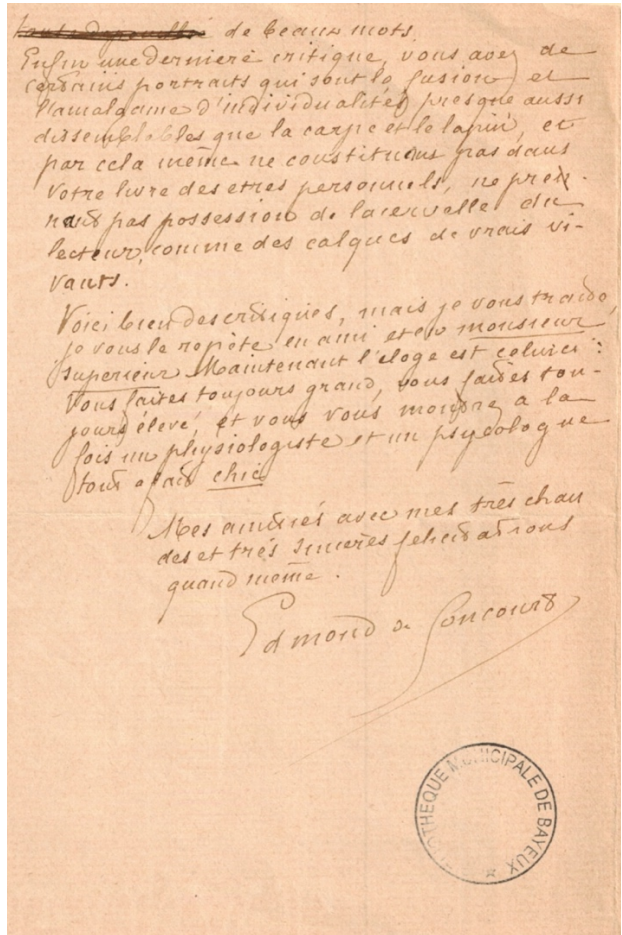 de beaux mots.
Enfin une dernière critique, vous avez de
certains portraits qui sont la fusion et
l'amalgame d'individualités presque aussi
dissemblables que la carpe et le lapin, et
par cela même ne constituent pas dans
votre livre des etres personnels, ne pren-
nant pas possession de la cervelle du
lecteur, comme des calques de vrais vi-
vants.
Voici bien des critiques, mais je vous traite,
je vous le repète en ami et en monsieur
superieur Maintenant l'eloge est celui ci :
Vous faites toujours grand, vous faites tou-
jours élevé, et vous vous montrez à la
fois un physiologiste et un psycologue
tout a fait chic
Mes amitiés avec mes très chau
des et trés sincères felicitations
quand même.
Edmond de Goncourt
BIBLIOTHEQUE MUNICIPALE DE BAYEUX